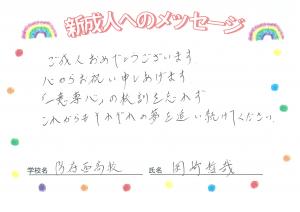 新成人へのメッセージ
ご成人おめでとうございます
心からお祝い申しあげます
「一意専心」の校訓を忘れず
これからもそれぞれの夢を追い続けてください
学校名 防府西高校 氏名 岡崎哲哉